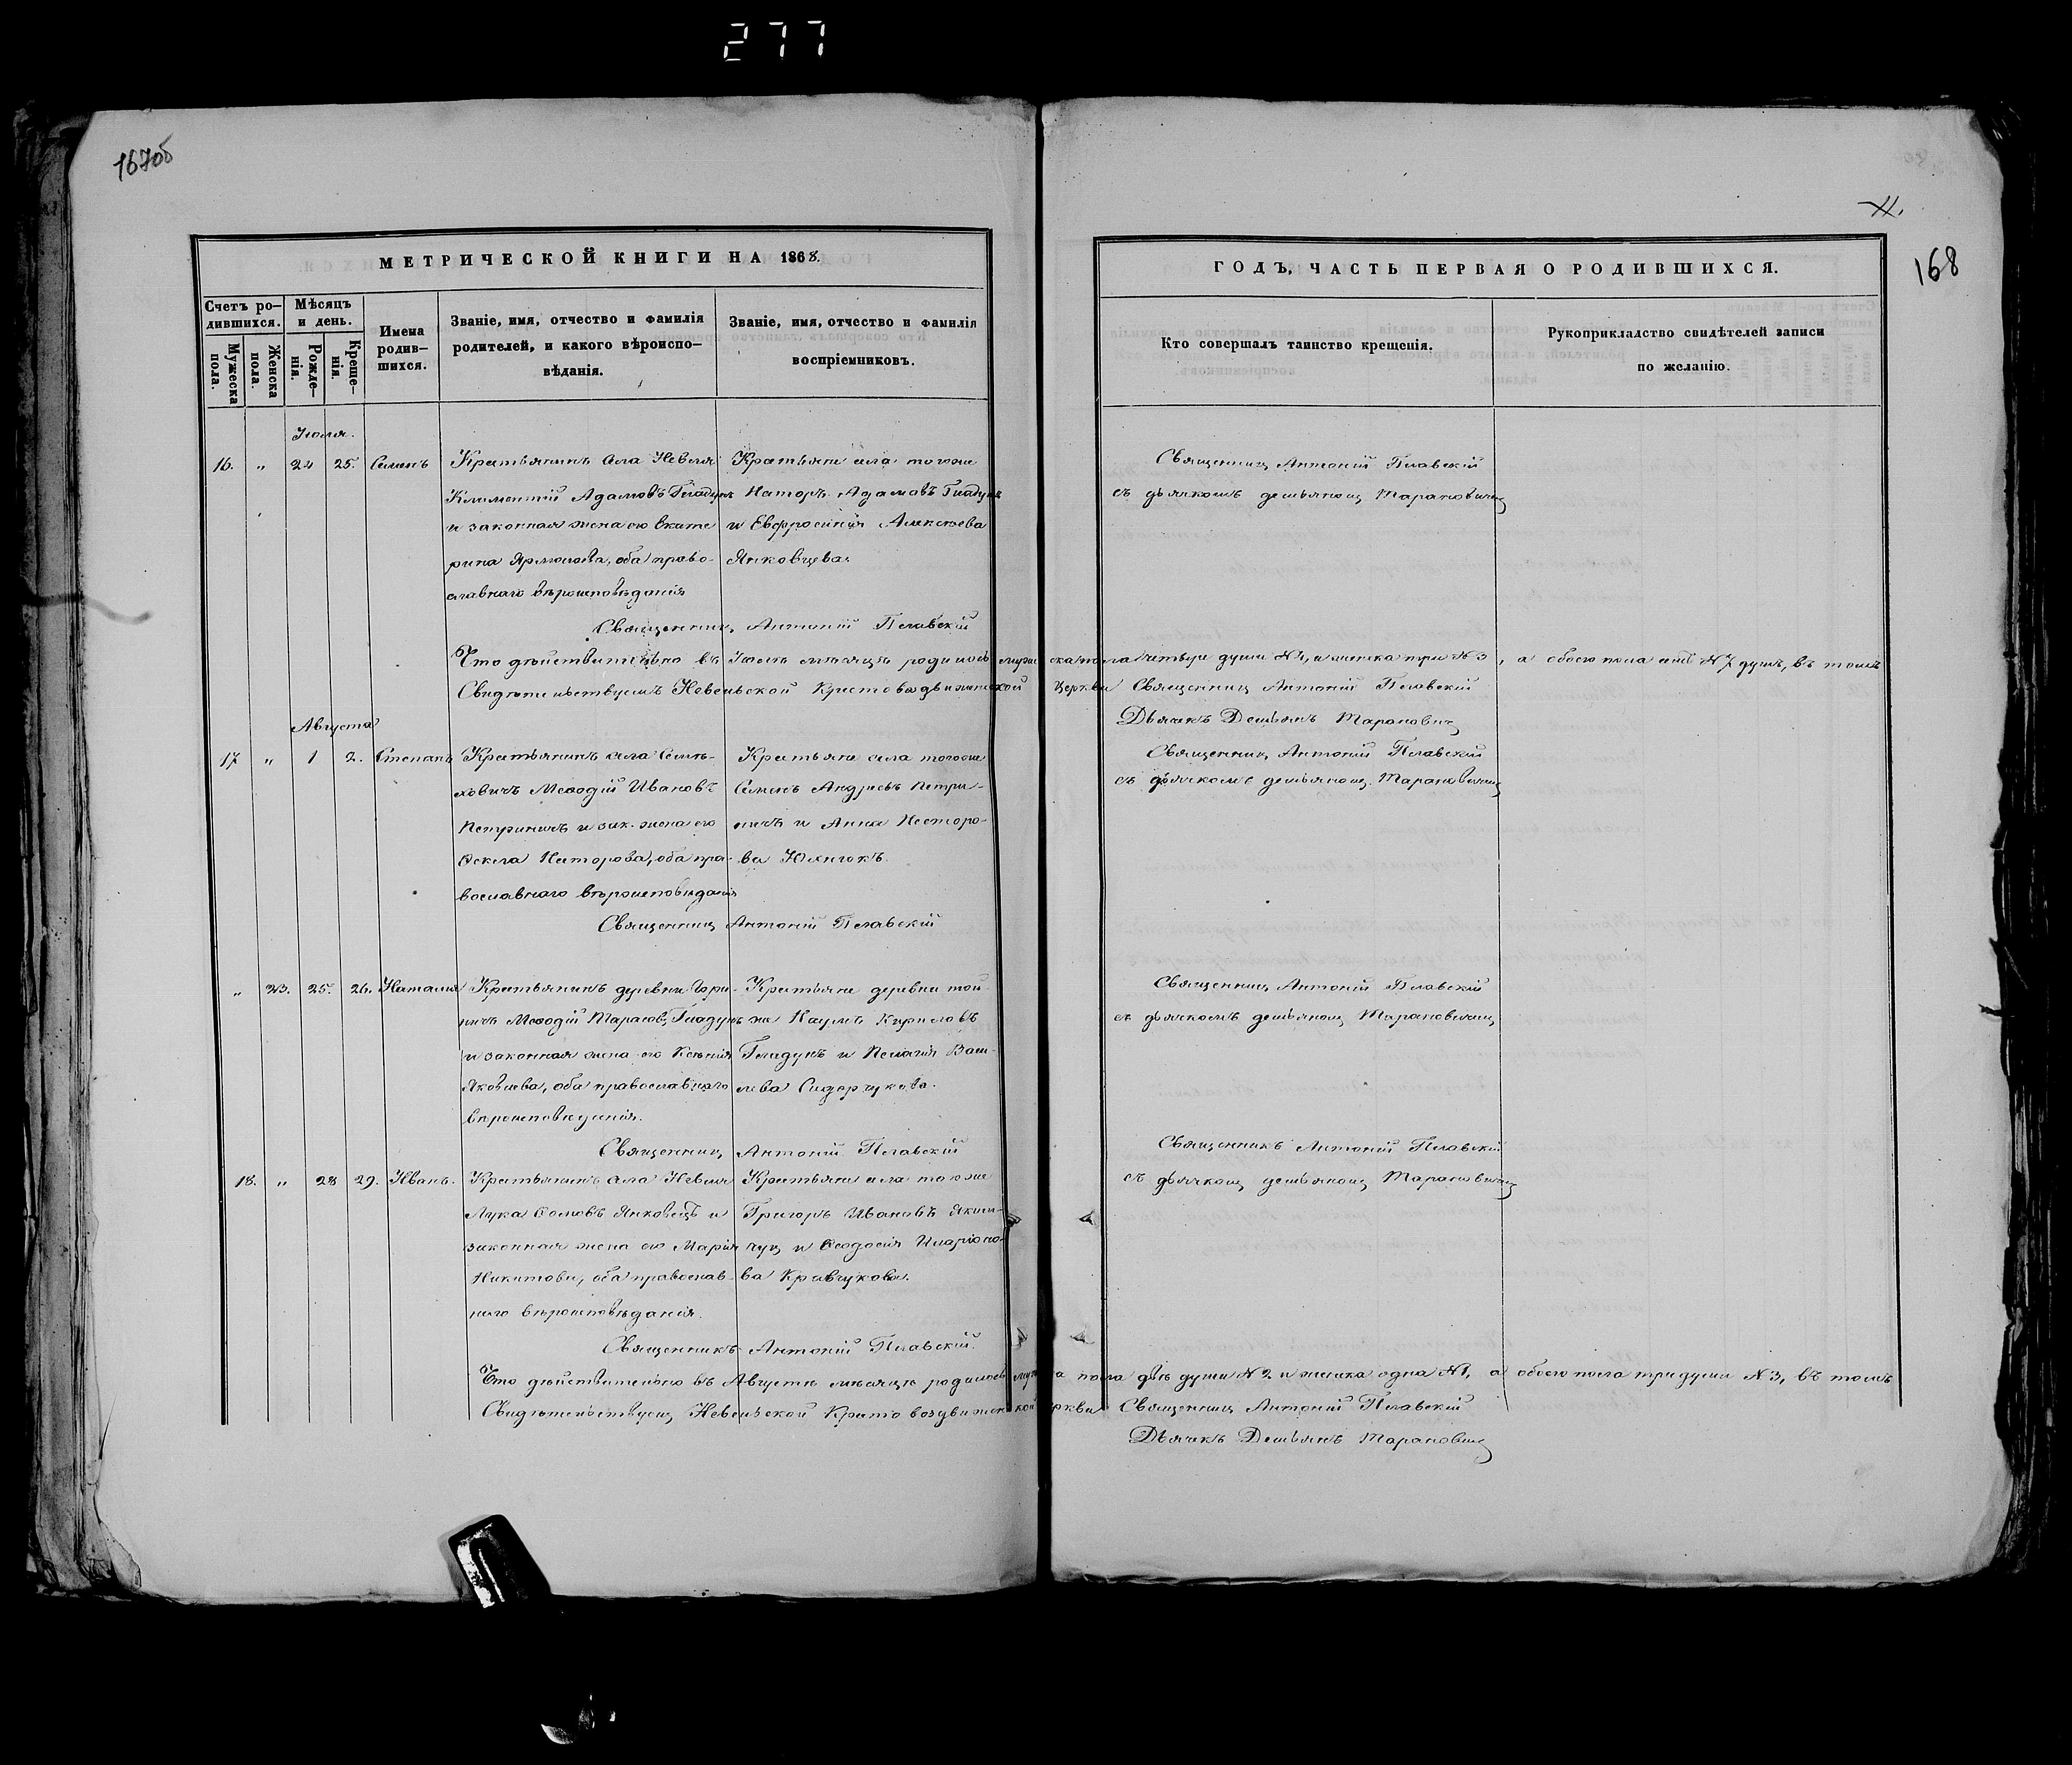 277
167об
168
МЕТРИЧЕСКОЙ КНИГИ НА 1868.
Счетъ ро-
дившихся.
Мѣсяцъ
и день.
Мужеска
пола.
Женска
пола.
Рожде-
нія.
Креще-
нія.
Имена
родив-
шихся.
Званіе, имя, отчество и фамилія
родителей, и какого вѣроиспо-
вѣданія.
Званіе, имя, отчество и фамилія
воспріемниковъ.
ГОДЪ, ЧАСТЬ ПЕРВАЯ О РОДИВШИХСЯ.
Кто совершалъ таинство крещенія.
Рукоприкладство свидѣтелей записи
по желанію.
Іюля.
16. " 24 25. Семенъ
Крестьянинъ села Невеля
Климентій Адамовъ Гладунъ
и законная жена его Екате
рина Ярмолова, оба право-
славнаго вѣроисповѣданія
Крестьяне села тогоже
Несторъ Адамовъ Гладунъ
и Евфросинія Алексѣева
Янковцева.
Священникъ Антоній Плавскій
съ дьячкомъ Демьяномъ Тарановичемъ
Священникъ Антоній Плавскій
Что дѣйствительно въ Іюлѣ мѣсяцѣ родилось мужеска пола четыре души №4, и женска три №3, а обоего пола семь №7 душъ, въ томъ
Свидѣтельствуемъ Невельской Крестовоздвиженской Церкви Священникъ Антоній Плавскій
Дьячекъ Демьянъ Тарановичъ
Августа
17 " 1 2. Степанъ
Крестьянинъ села
Меѳодій Ивановъ
Петриничъ и зак. жена его
Ѳекла Несторова, оба пра-
вославнаго вѣроисповѣданія
Крестьяне села тогоже
Семенъ Андреевъ Петри-
ничъ и Анна Несторо-
ва
Священникъ Антоній Плавскій
съ дьячкомъ Демьяномъ Тарановичемъ
Священникъ Антоній Плавскій
" 23. 25. 26. Наталія
Крестьянинъ деревни
Меѳодій Тарасовъ Гладунъ
и законная жена его Ксенія
Яковлева, оба православнаго
вѣроисповѣданія.
Крестьяне деревни той
же Наумъ Кириловъ
Гладунъ и Пелагія Васи-
лева Сидорчукова.
Священникъ Антоній Плавскій
съ дьячкомъ Демьяномъ Тарановичемъ
Священникъ Антоній Плавскій
18. " 28 29. Иванъ.
Крестьянинъ села Невеля
Лука Ѳомовъ Янковецъ и
законная жена его Марія
Никитова, оба православ-
наго вѣроисповѣданія.
Крестьяне села тогоже
Григоръ Ивановъ Яким-
чукъ и Ѳеодосія Иларіоно-
ва Кравчукова.
Священникъ Антоній Плавскій
съ дьячкомъ Демьяномъ Тарановичемъ
Священникъ Антоній Плавскій.
Что дѣйствительно въ Августѣ мѣсяцѣ родилось мужеска пола двѣ души №2 и женска одна №1, а обоего пола три души №3, въ томъ
Свидѣтельствуемъ Невельской Крестовоздвиженской церкви Священникъ Антоній Плавскій
Дьячекъ Демьянъ Тарановичъ